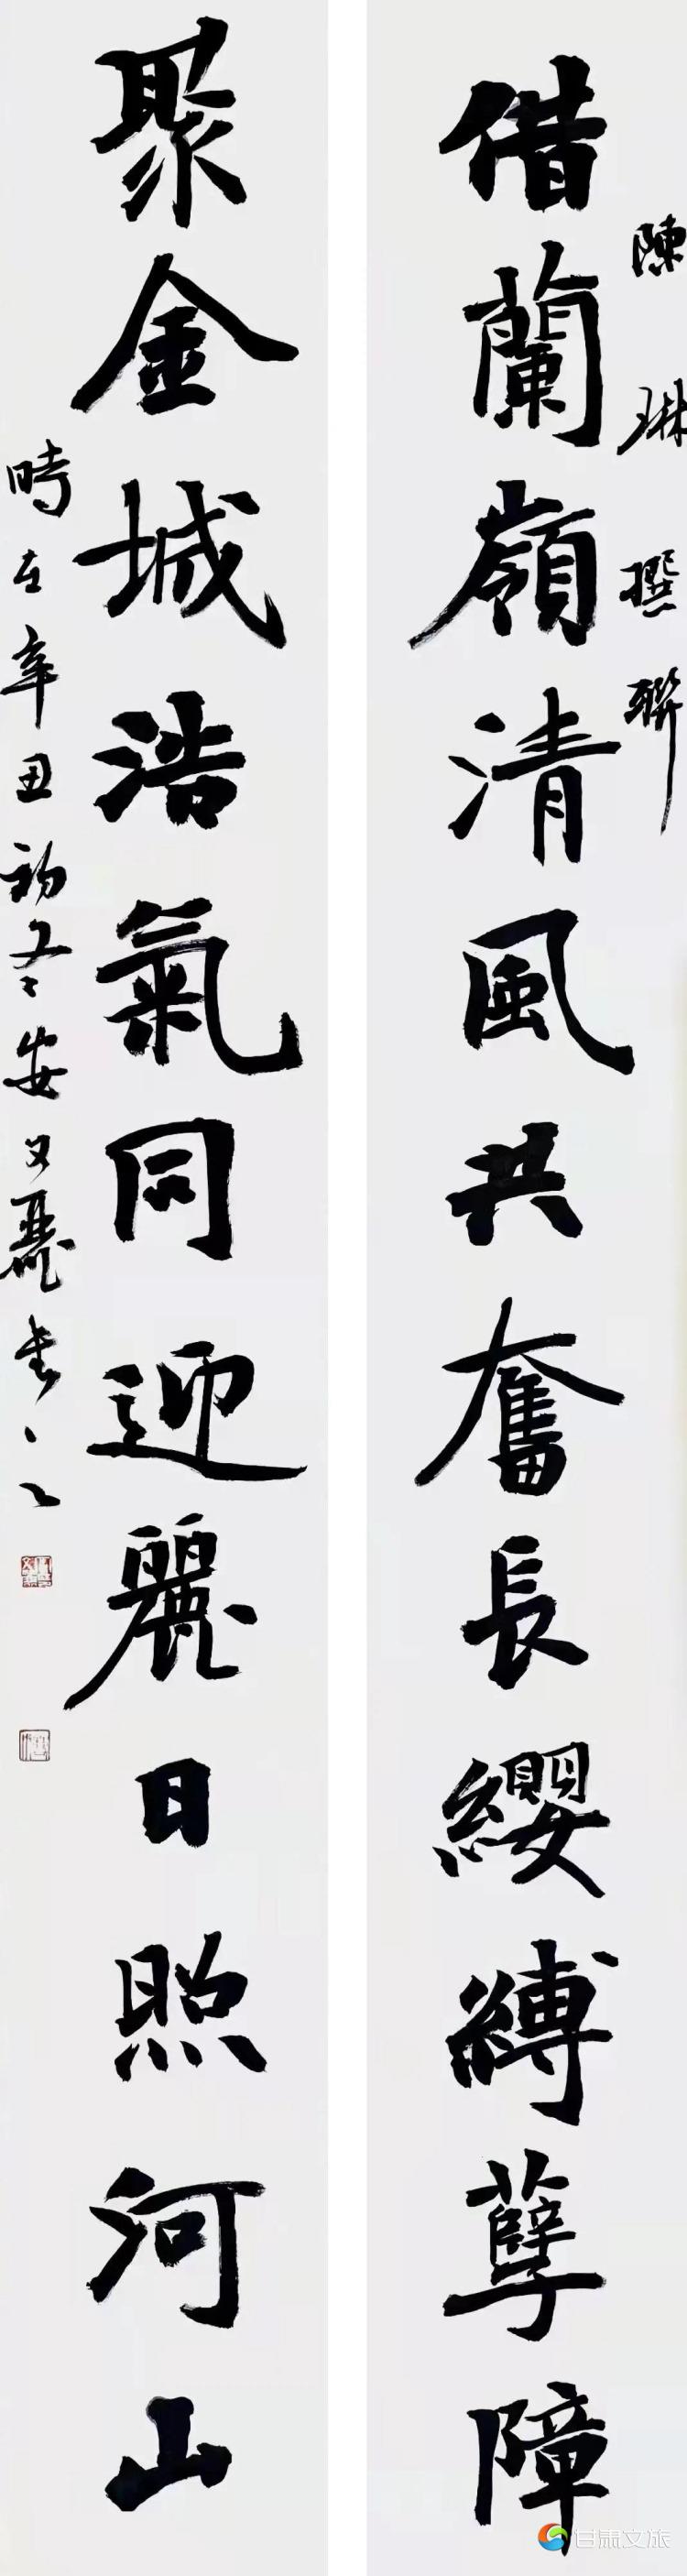 陳琳撰聯
借蘭嶺清風共奮長纓縛孽障
聚金城浩氣同迎麗日照河山
時在辛丑初冬安文麗書
甘肃文旅